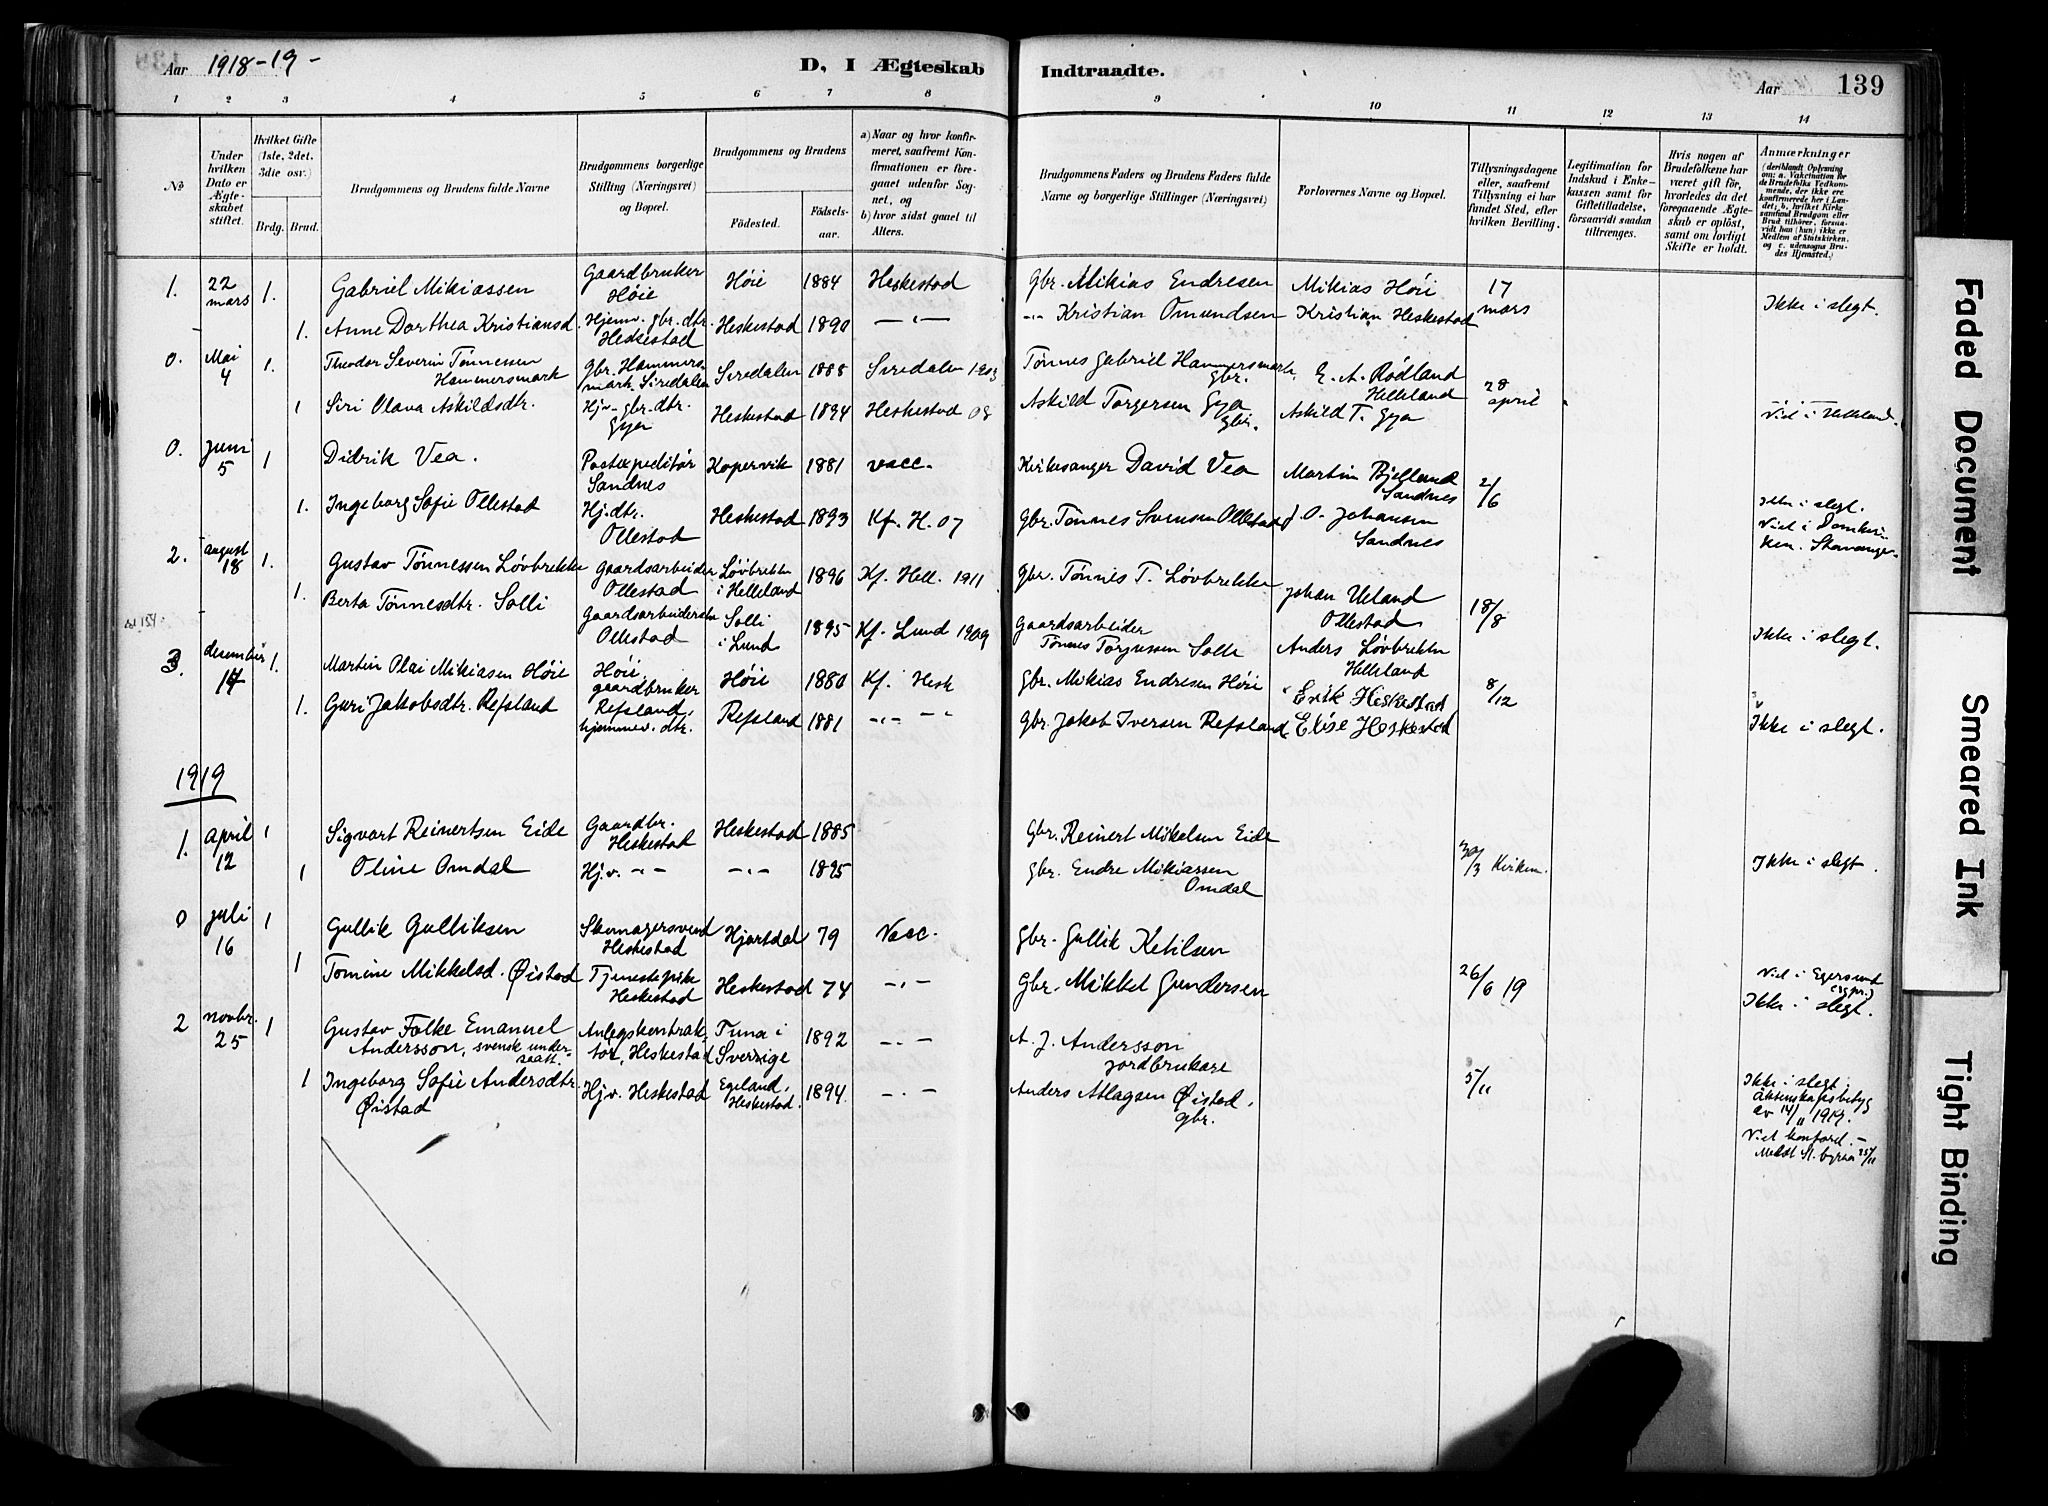 Aar 1918-19-
D, I Ægteskab Indtraadte.
Aar
139
1 2 3 4 5 6 7 8 9 10 11 12 13 14
№
Under hvilken Dato er Ægteskabet stiftet.
Hvilket Gifte (1ste, 2det, 3die osv.)
Brdg. Brud.
Brudgommens og Brudens fulde Navne
Brudgommens borgerlige Stilling (Næringsvei) og Bopæl.
Brudgommens og Brudens
Födested.
Födselsaar.
a) Naar og hvor konfirmeret, saafremt Konfirmationen er foregaaet udenfor Sognet, og
b) hvor sidst gaaet til Alters.
Brudgommens Faders og Brudens Faders fulde Navne og borgerlige Stillinger (Næringsvei)
Forlovernes Navne og Bopæl.
Tillysningsdagene eller, saafremt Tillysning ei har fundet Sted, efter hvilken Bevilling.
Legitimation for Indskud i Enkekassen samt for Giftetilladelse, forsaavidt saadan tiltrænges.
Hvis nogen af Brudefolkene har været gift før, hvorledes da det foregaaende Ægteskab er opløst, samt om lovligt Skifte er holdt.
Anmærkninger
(deriblandt Oplysning om: a. Vaccination for de Brudefolks Vedkommende, der ikke ere konfirmerede her i Landet; b. hvilket Kirkesamfund Brudgom eller Brud tilhører, forsaavidt han (hun) ikke er Medlem af Statskirken, og c. udensogns Brudes Hjemsted.)
1. 22 mars 1. Gabriel Mikiassen Gaardbruker Høie Høie 1884 Heskestad Gbr. Mikias Endresen Mikias Høri 17 mars
1. Anne Dorthea Kristiansd. Hjemv. gbr. dtr. Heskestad Heskestad 1890 -"- -"- Kristian Omundsen Kristian Heskestad Ikke i slegt.
0. Mai 4 1. Theodor Severin Tønnessen Hammersmark gbr. Hammersmark, Siredalen Siredalen 1888 Siredalen 1903 Tønnes Gabriel Hammersmark gbr. E. A. Rødland Helleland 28 april
1 Siri Olava Askildsdtr. Hjv. gbr. dtr. Gya Heskestad 1894 Heskestad 08 Askild Torgersen Gya gbr. Askild T. Gya Viel i Helleland.
0. Juni 5 1 Didrik Vea. Postexpeditør Sandnes Kopervik 1881 vacc. Kirkesanger David Vea Martin Bjelland Sandnes 2/6
1. Ingeborg Sofie Ollestad Hj. dtr. Ollestad Heskestad 1893 Kf. H. 07 Gbr. Tønnes Svensen Ollestad J. O. Johansen Sandnes Ikke i slegt. Viel i Domkirken. Stavanger.
2. august 18 1. Gustav Tønnessen Løvbrekke Gaardsarbeider Ollestad Løvbrekke i Helleland 1896 Kf. Hell. 1911 Gbr. Tønnes T. Løvbrekke Johan Ueland Ollestad 18/8
1. Berta Tønnesdtr. Solli Gaardsarbeiderske Ollestad Solli i Lund 1895 Kf. Lund 1909 Gaardsarbeider Tønnes Torgersen Solli Anders Løvbrekke Helleland Ikke i slegt.
3. desember 14 1. Martin Olai Mikiasen Høie Høie, gaardbruker Høie 1880 Kf. Hesk Gbr. Mikias Endresen Høie Erik Heskestad 8/12
1. Guri Jakobsdtr. Refsland Refsland, hjemmev. dtr. Refsland 1881 -"- -"- Gbr. Jakob Iversen Refsland Elise Heskestad Ikke i slegt.
1919
1. april 12 1 Sigvart Reinertsen Eide Gaardbr. Heskestad Heskestad 1885 Gbr. Reinert Mikelsen Eide
1 Oline Omdal Hj.v. -"- -"- 1895 Gbr. Endre Mikiassen Omdal 30/3 Kirken. Ikke i slegt.
0 juli 16 1 Gullik Gulliksen Skomagersvend Heskestad Hjartdal 79 Vacc. Gbr. Gullik Ketilsen
1 Tomine Mikkelsd. Øistad Tjenestepike Heskestad Heskestad 74 -"- Gbr. Mikkel Gundersen 26/6 19 Viel i Egersund Ikke i slegt.
2 novbr. 25 1 Gustav Folke Emanuel Andersson, svensk undersaatt. Anlegskontraktør, Heskestad Tuna i Sverrige 1892 -"- A. J. Andersson jordbrukare
1 Ingeborg Sofie Andersdtr. Øistad Hjv. Heskestad Egeland, Heskestad. 1894 -"- Anders Atlagsen Øistad, gbr. 5/11 Ikke i slegt. Äktenskapsbetyg av 14/11 1919. Viel
Faded Document
Smeared Ink
Tight Binding